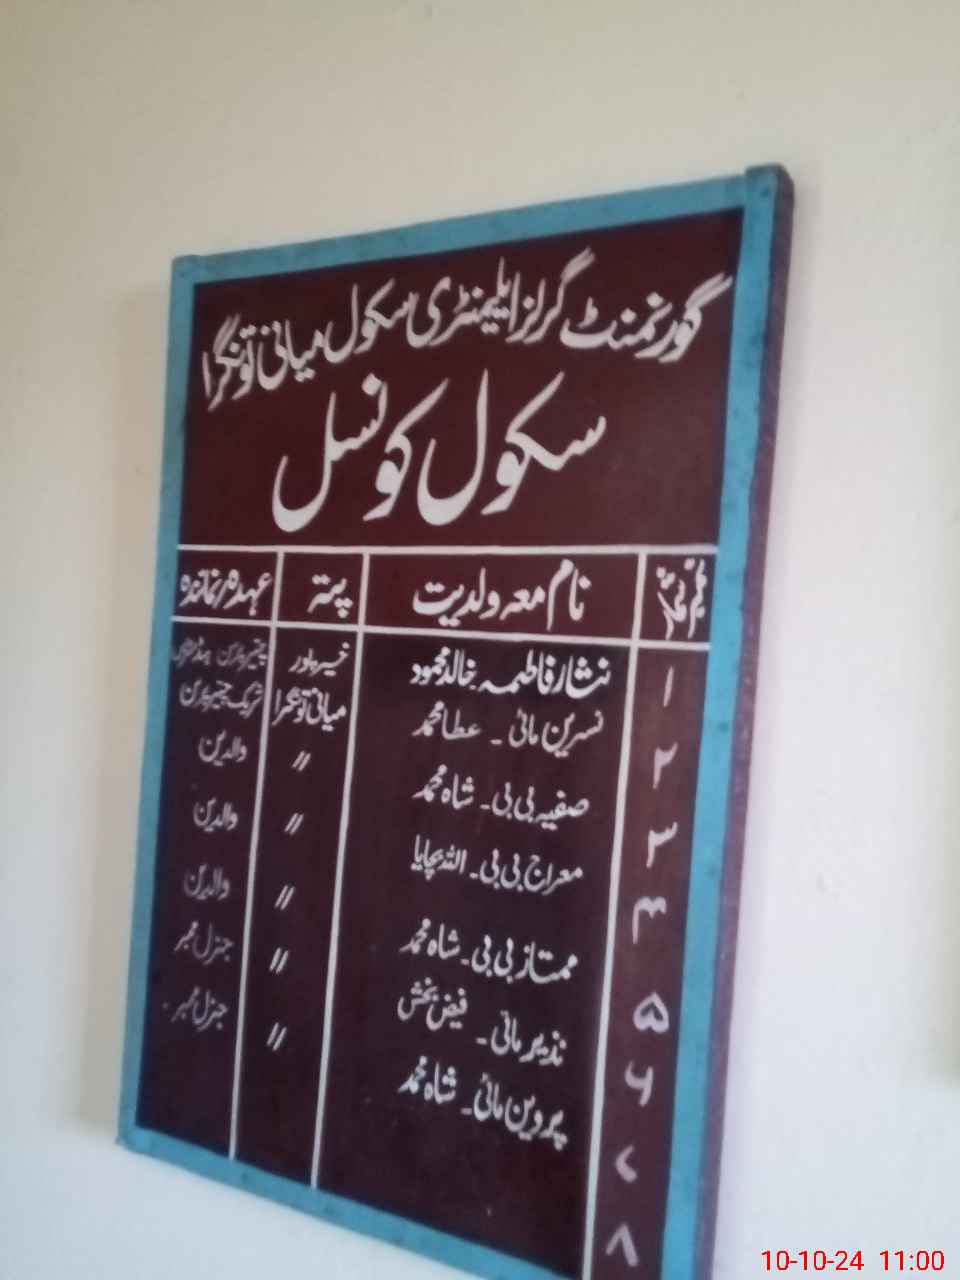 گورنمنٹ گرلز ایلیمنٹری سکول میانی تونگرا
سکول کونسل
نمبر شمار نام معہ ولدیت پتہ عہدہ/نمائندہ
۱ نثار فاطمہ خالد محمود خیرپور چیئرپرسن
۲ نسرین مائی ۔ عطا محمد میانی تونگرا شریک چیئرپرسن
۳ صفیہ بی بی ۔ شاہ محمد 〃 والدین
۴ معراج بی بی ۔ اللہ بچایا 〃 والدین
۵ ممتاز بی بی ۔ شاہ محمد 〃 والدین
۶ نذیر مائی ۔ فیض بخش 〃 جنرل ممبر
۷ پروین مائی ۔ شاہ محمد 〃 جنرل ممبر ۔
۸
10-10-24 11:00